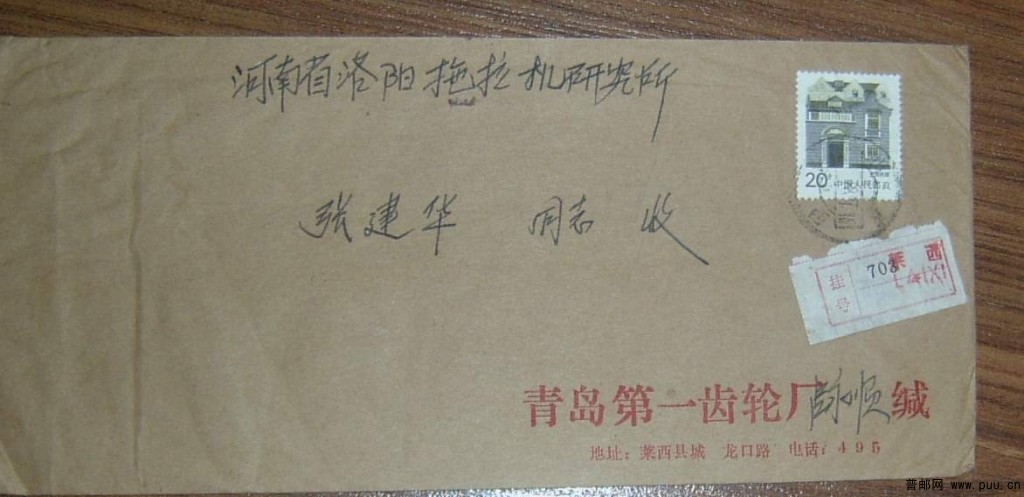 河南省洛阳拖拉机研究所
20分
中国人民邮政
张建华 同志 收
莱西
挂号
703
LAIXI
青岛第一齿轮厂 缄
地址：莱西县城 龙口路 电话：495
普邮网 www.puu.cn